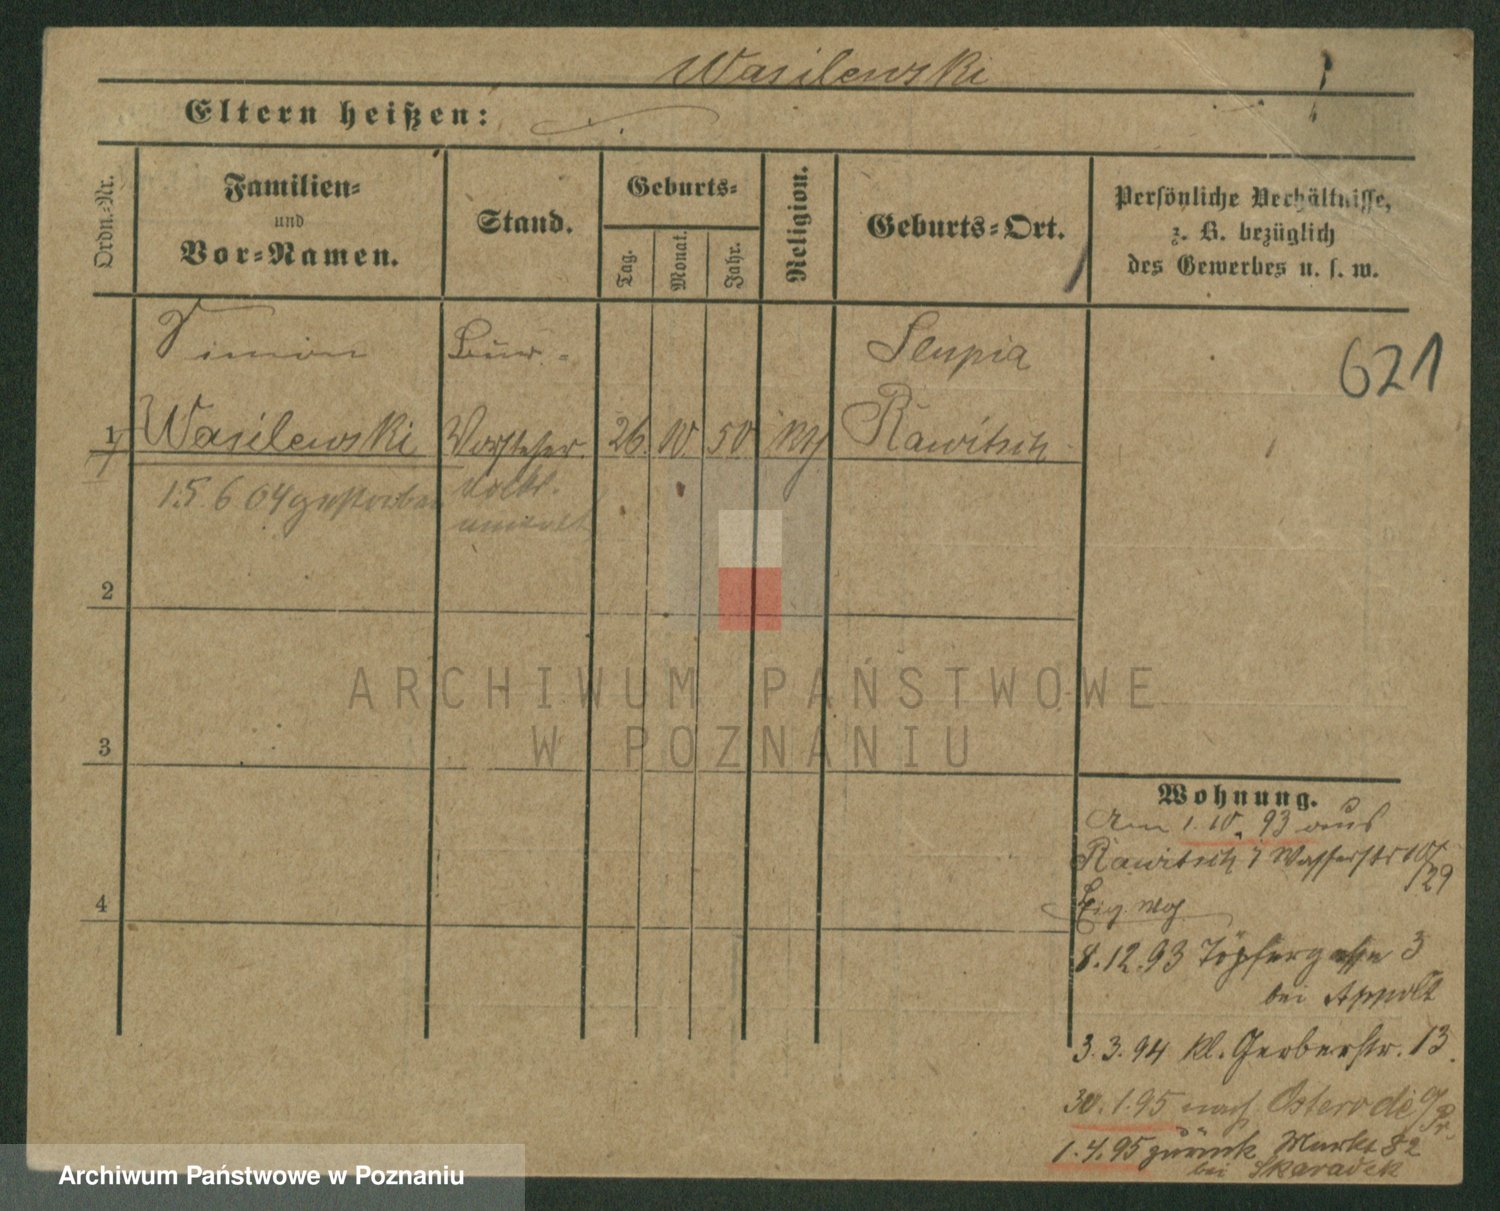 Wasilewski
Eltern heißen:
Ordn.-Nr.
Familien-
und
Vor-Namen.
Stand.
Geburts-
Tag.
Monat.
Jahr.
Religion.
Geburts-Ort.
Persönliche Verhältnisse,
z. B. bezüglich
des Gewerbes u. s. w.
Simon
Bür-
Slupia
621
1
Wasilewski
Vorsteher.
26. 10. 50
kth
Rawitsch
15.6 04 gestorben
2
3
4
ARCHIWUM PAŃSTWOWE
W POZNANIU
Wohnung.
Am 1.10.93 aus
Rawitsch Wasserstr 10
/29
Eig. Wg
8.12.93 Töpfergasse 3
bei Appolt
3.3.94 kl. Gerberstr. 13.
30.1.95 nach Osterode O/Pr.
1.4.95 zurück Markt 82
bei Skaradek
Archiwum Państwowe w Poznaniu